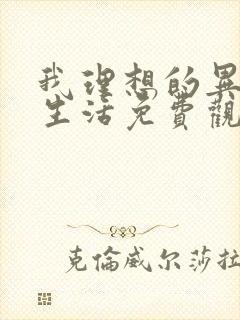 我理想的異
生活免費觀
克倫威尔莎拉